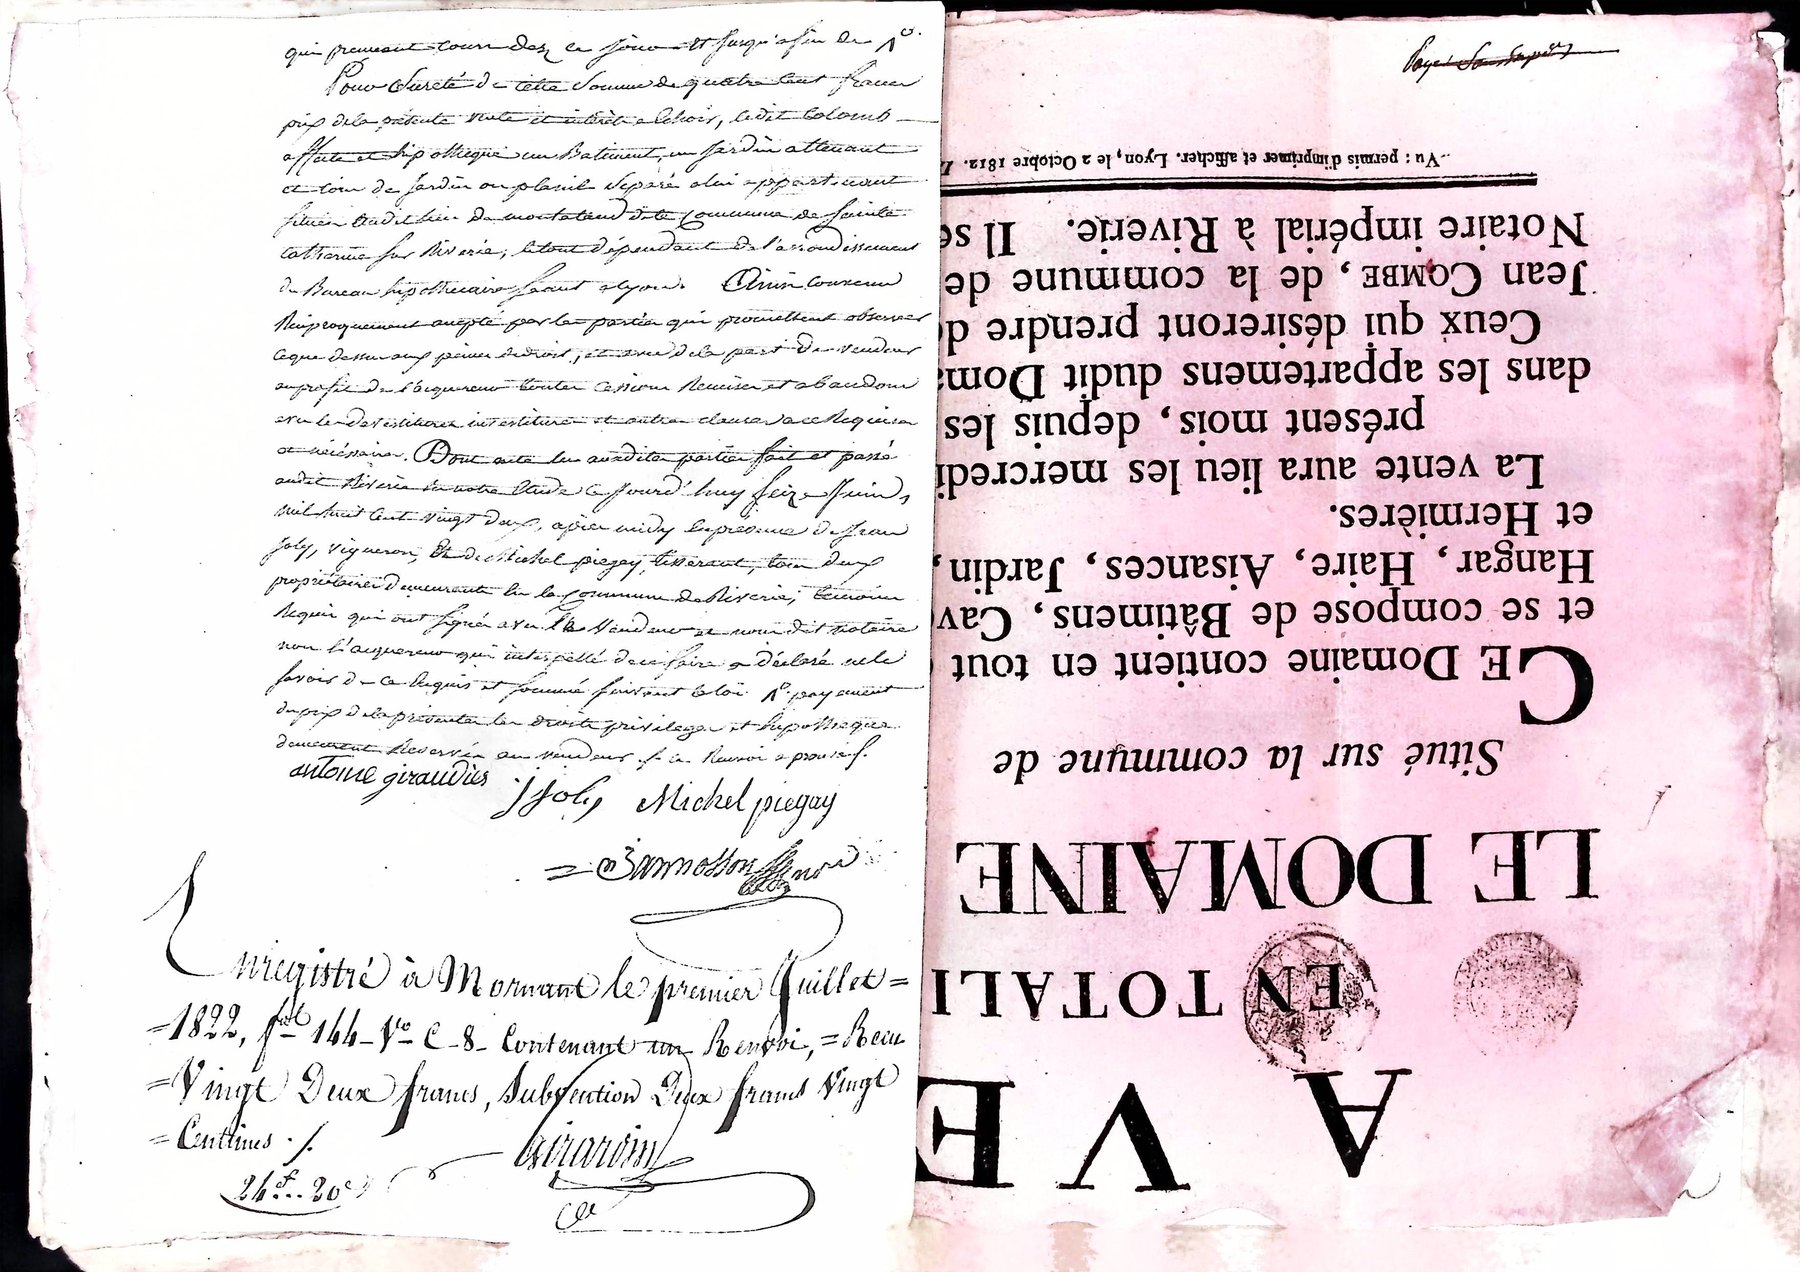 qui prennent cours dez ce jour et jusqu'a fin de 1º.
Pour sureté de cette somme de quatre cent francs
prix de la présente vente et intérêts a échoir, ledit Colomb
affecte et hipotheque un Batiment, un jardin attenant
et coin de jardin ou separé a lui appartenant
situés audit lieu de dite Commune de Sainte
Catherine sur Riverie, le tout dépendant de l'arrondissement
du Bureau hipothecaire séant a Lyon. Ainsi convenu
Réciproquement accepté par les parties qui promettent observer
ce que dessus aux peines de droit, et avec de la part du vendeur
au profit de l'acquereur toutes cessions Remises et abandon
avec les devestitures investitures et autres clauses a ce Requises
et nécéssaires. Dont acte lu auxdites parties fait et passé
audit Riverie en notre Etude ce jourd'huy seize Juin,
mil huit cent vingt deux, après midy en présence de Jean
Joly, vigneron, et de Michel piegay, tisserant, tous deux
propriétaires demeurants en la Commune de Riverie, temoins
Requis qui ont signés avec le vendeur et nous dit notaire
non l'acquereur qui interpellé de ce faire a déclaré ne le
savoir de ce Enquis et sommé suivant la loi 1º. payement
du prix de la présente les droits privilege et hipotheque
demeurent Reservés au vendeur ./. ce Renvoi approuvé ./.
antoine giraudies
J Joly Michel piegay
Enregistré à Mornant le premier Juillet =
=1822, fol 144 Vº C 8 Contenant un Renvoi, = Recu
=Vingt Deux francs, Subvention Deux francs Vingt
=Centimes ./.
Girardin
24f.. 20c
Vu : permis d'imprimer et afficher. Lyon, le 2 Octobre 1812.
Notaire impérial à Riverie. Il se
Jean COMBE, de la commune de
Ceux qui désireront prendre de
dans les appartemens dudit Doma
présent mois, depuis les
La vente aura lieu les mercredi
et Hermières.
Hangar, Haire, Aisances, Jardin,
et se compose de Bâtimens, Cav
CE Domaine contient en tout
Situé sur la commune de
LE DOMAINE
EN TOTALI
A VE